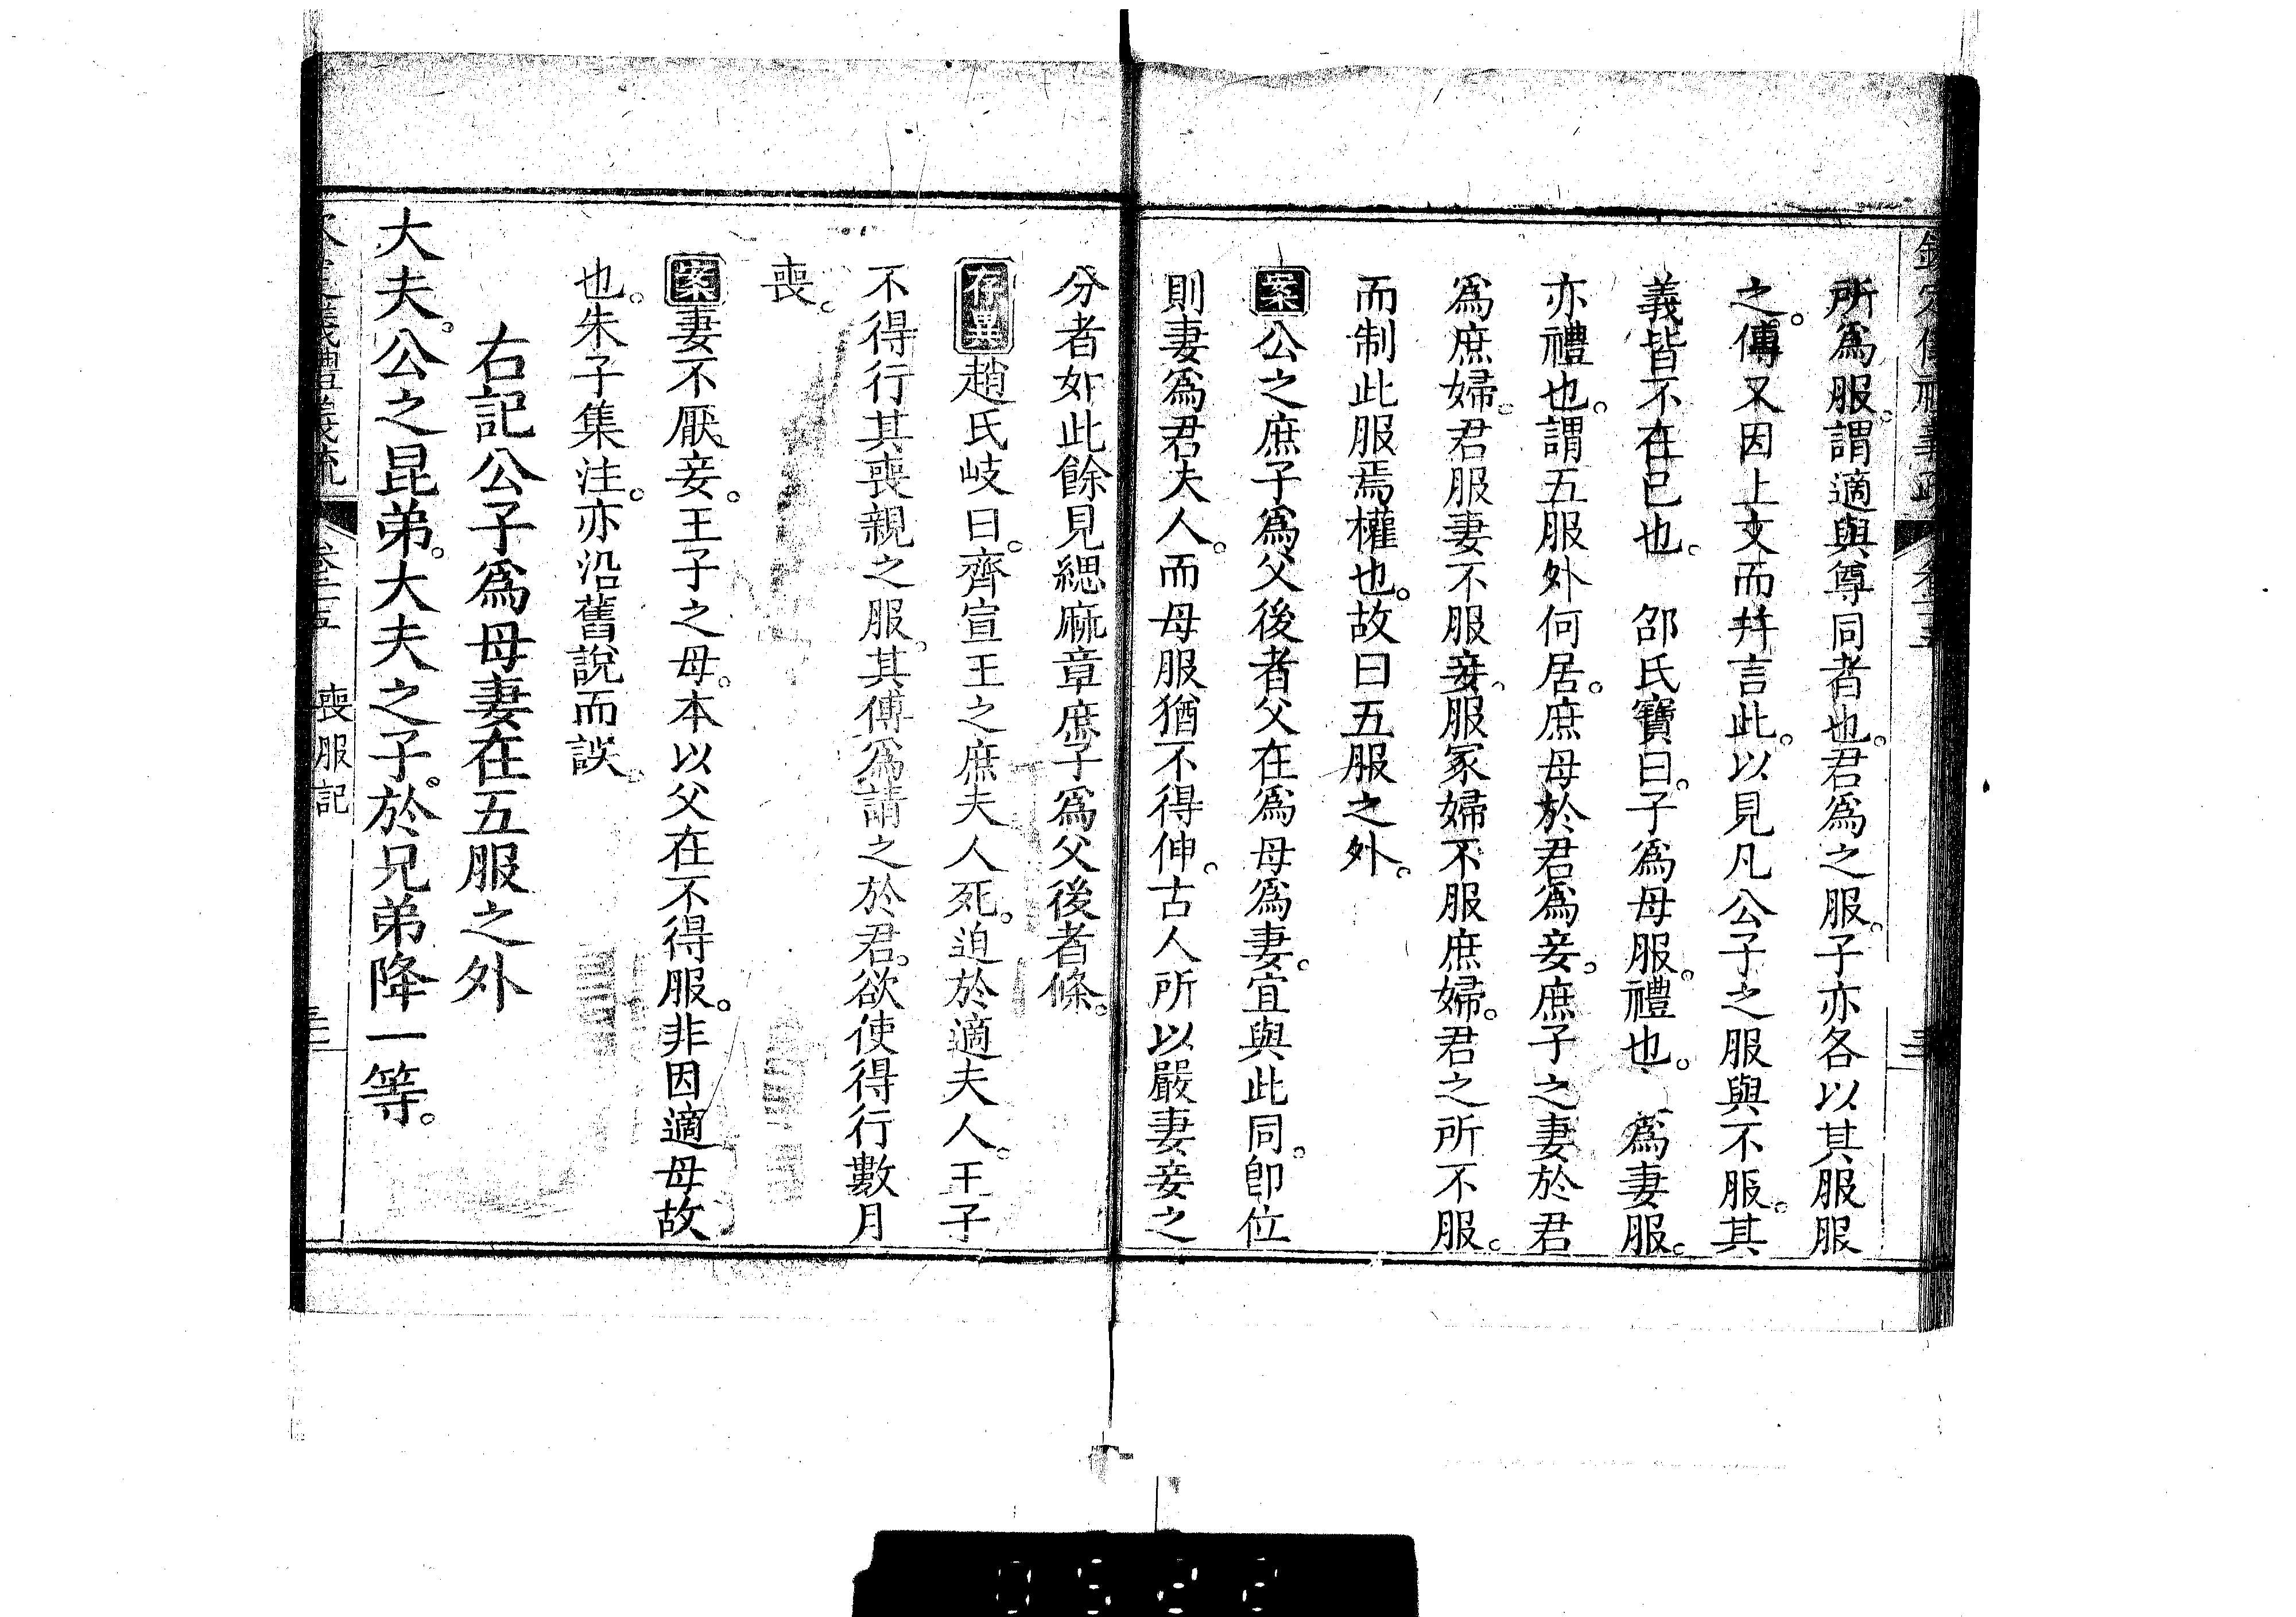 欽定儀禮義疏 卷二十五
所爲服。謂適與尊同者也。君爲之服。子亦各以其服服
之。傳又因上文而幷言此。以見凡公子之服與不服。其
義皆不在已也。 邵氏寶曰。子爲母服。禮也。 爲妻服。
亦禮也。謂五服外何居。庶母於君爲妾。庶子之妻於君
爲庶婦。君服妻不服妾。服冢婦不服庶婦。君之所不服。
而制此服焉權也。故曰五服之外。
案公之庶子爲父後者父在爲母爲妻。宜與此同。卽位
則妻爲君夫人。而母服猶不得伸。古人所以嚴妻妾之
分者如此餘見緦麻章庶子爲父後者條。
存異趙氏岐曰。齊宣王之庶夫人死。迫於適夫人。王子
不得行其喪親之服。其傅爲請之於君。欲使得行數月
喪。
案妻不厭妾。王子之母。本以父在不得服。非因適母故
也。朱子集注。亦沿舊說而誤。
右記公子爲母妻在五服之外
大夫。公之昆弟。大夫之子。於兄弟降一等。
欽定儀禮義疏 卷二十五 喪服記
0522